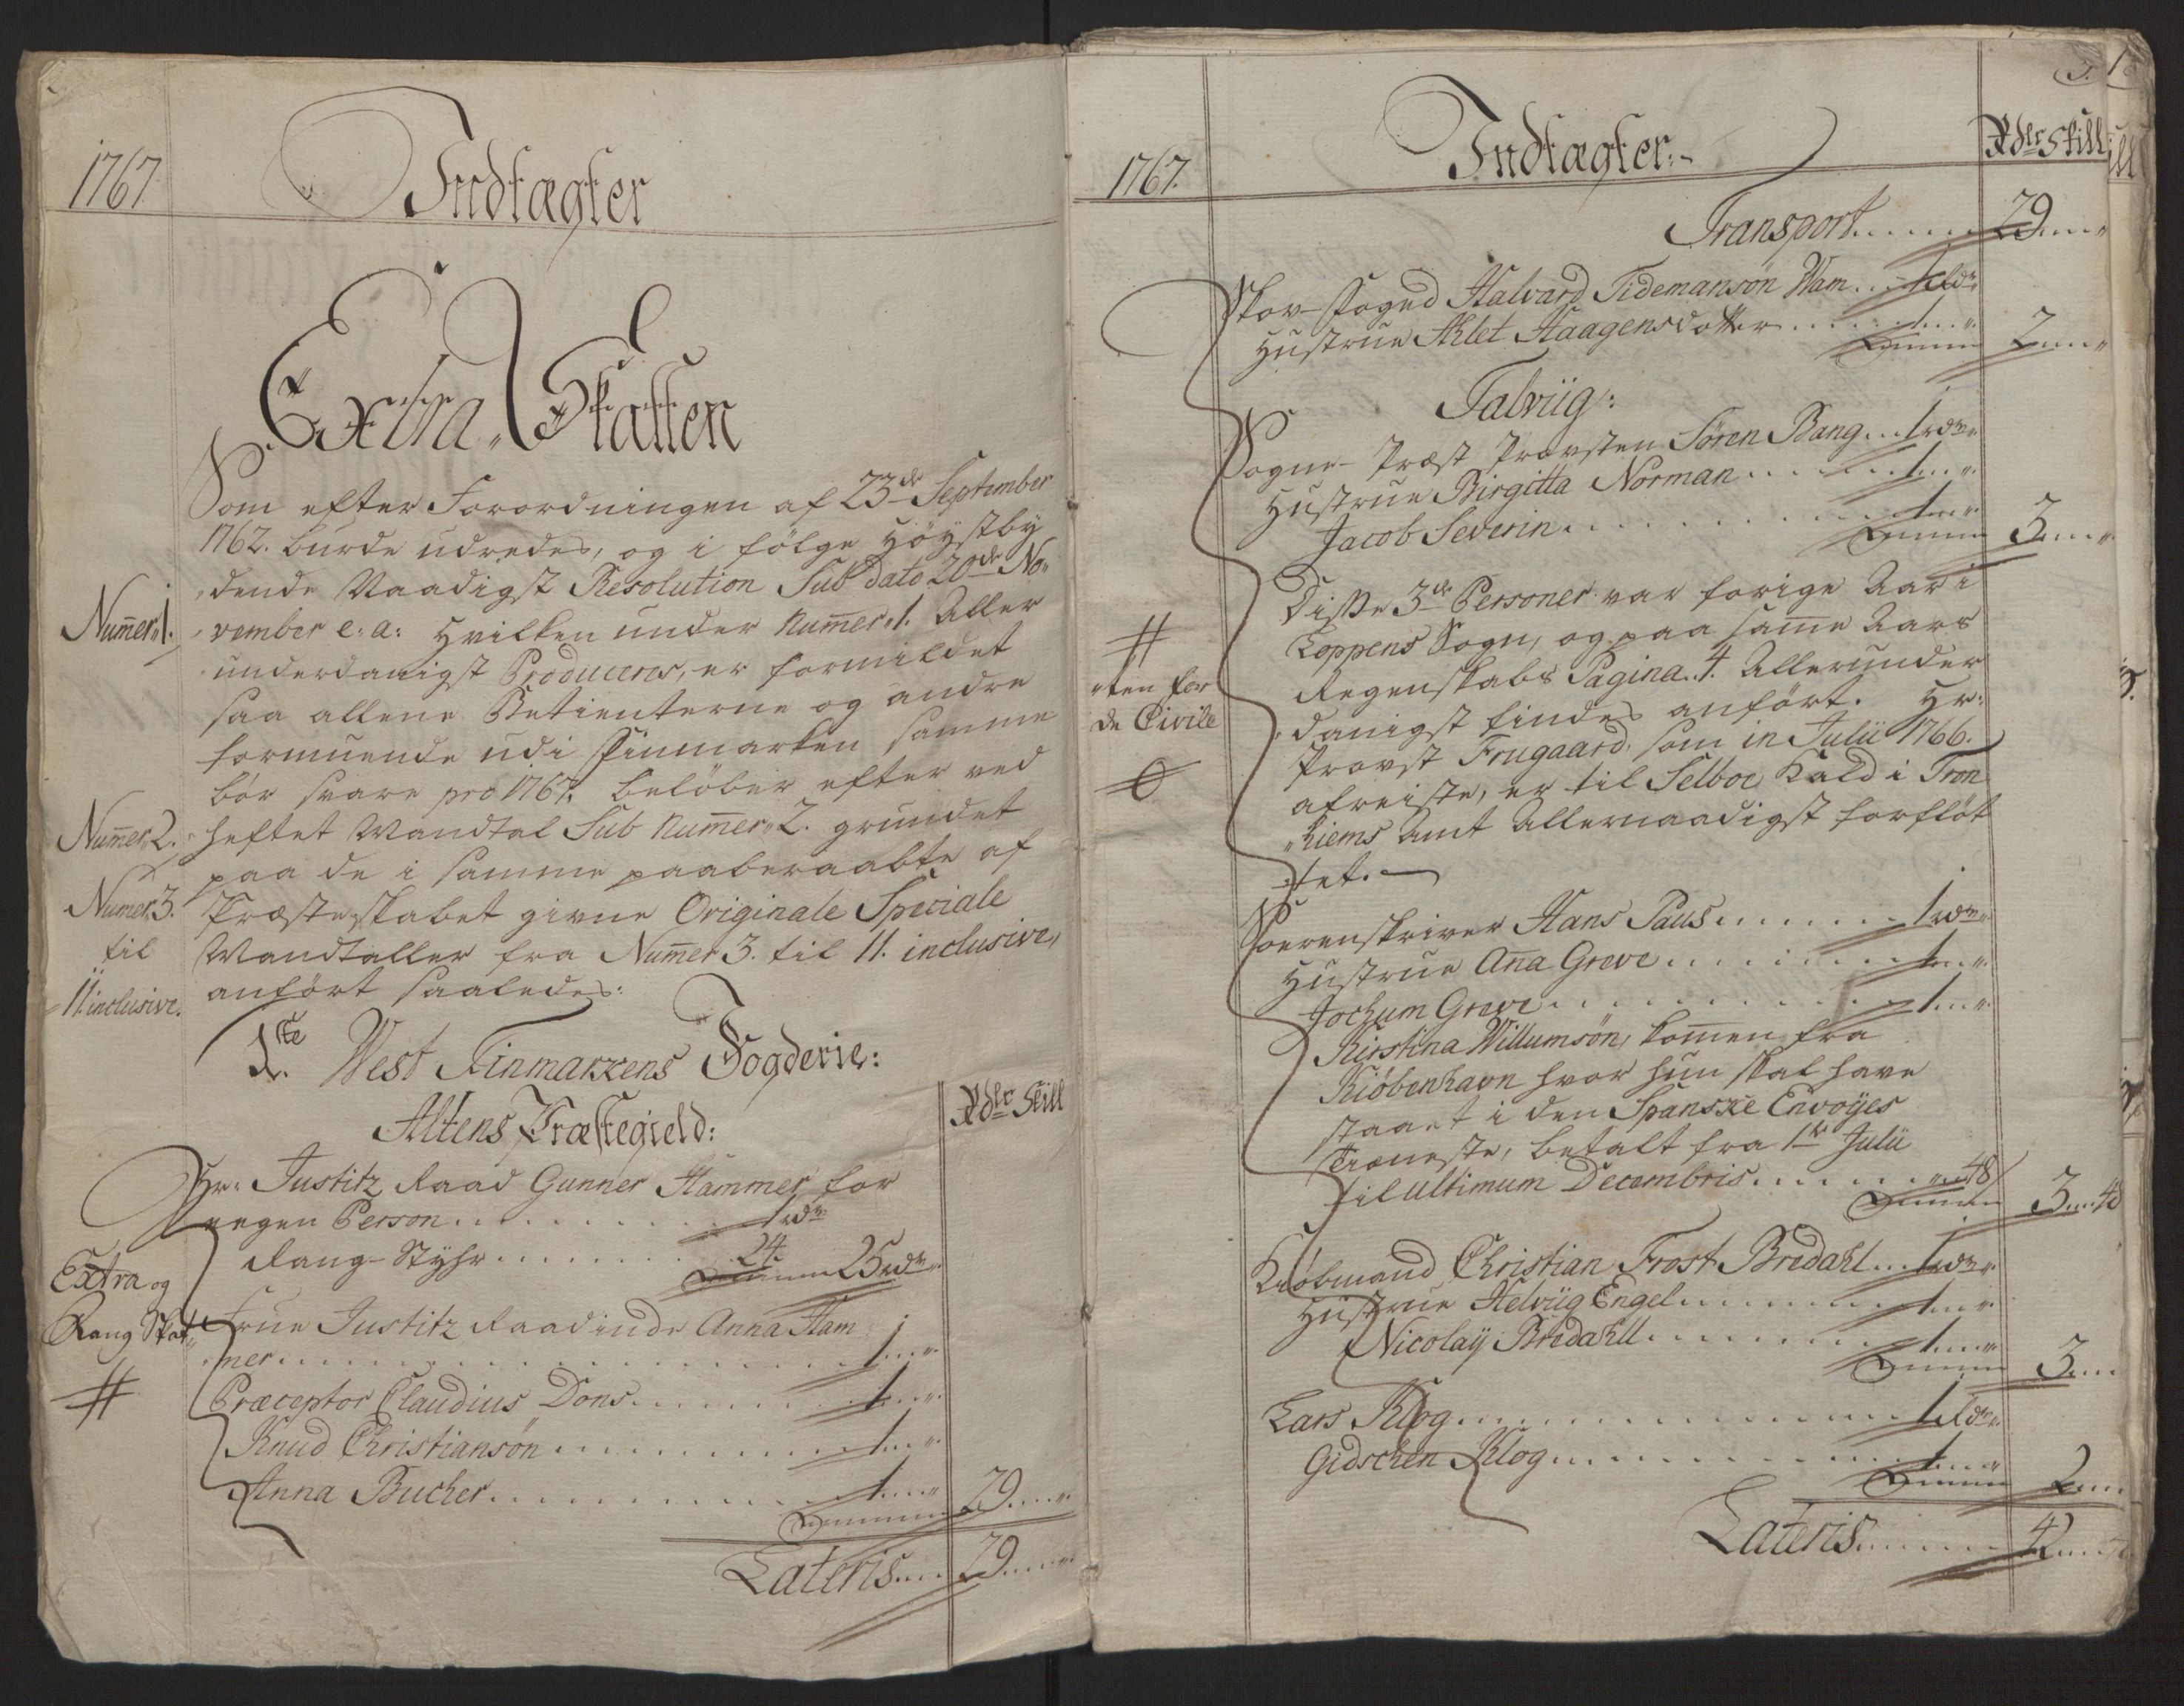 1767.
Indtægter
Extra Skatten
Som efter Forordningen af 23de September
1762. burde udredes, og i følge Høystby
dende Naadigst Resolution Sub dato 20de No„
Numer„1.
vember e: a: hvilken under Numer„1. Aller
underdanigst Produceres, er formildet
saa allene Betienterne og andre
formuende udi Finmarken samme
bør svare pro 1767. beløber efter ved
Numer„2.
heftet Mandtal Sub Numer„2. grundet
paa de i samme paaberaabte af
Numer3.
Præsteskabet givne Originale Speciale
til
Mandtaller fra Numer 3. til 11. inclusive,
11. inclusive.
anført saaledes:
1ste West Finmarkens Fogderie:
Altens Præstegield:
Rdlr Skill
Hr: Justitz Raad Gunner Hammer for
eegen Person . . . 1 rdr
Rang-Styhr . . . 24.
25 rdr
Extra og
Rang Skat„
Frue Justitz Raadinde Anna Ham
mer . . . 1 „
#
Præceptor Claudius Dons . . . 1 „
Knud Christiansøn . . . 1 „
Anna Bucher . . . 1 „
29 „
Lateris . . . 29 „
1767.
Indtægter:
Rdlr Skill
Transport . . . 29 „
Skov-Foged Halvard Tidemansøn Wam . . . 1 rdr
Hustrue Ahlet Haagensdotter . . . 1 „
2 „
Talviig:
Sogne-Præst Provsten Søren Bang . . . 1 rdr
Hustrue Birgitta Norman . . . 1 „
Jacob Severin . . . 1 „
3 „
Disse 3de Personer var forige Aar i
#
Loppens Sogn, og paa samme Aars
„ten for
Regenskabs Pagina. 4. Allerunder
de Civile
danigst findes anført. Hr:
Provst Frugaard, som in Julii 1766.
afreiste, er til Selboe Kald i Tron
„hiems Amt Allernaadigst forflöt
tet.
Sorenskriver Hans Paus . . . 1 rdr
Hustrue Ana Greve . . . 1 „
Jochum Greve . . . 1 „
Kirstina Willumsøn, komen fra
Kiøbenhavn hvor hun skal have
staaet i den Spanske Envoyes
Tieneste, betalt fra 1te Julii
til ultimum Decembris . . . 48
3 „ 48
Kiøbmand Christian Frost Bredahl . . . 1 rdr
Hustrue Helviig Engel . . . 1 „
Nicolay Bredahll . . . 1 „
3 „
Lars Klog . . . 1 rdr
Gidschen Klog . . . 1 „
2 „
Lateris . . . 42 „